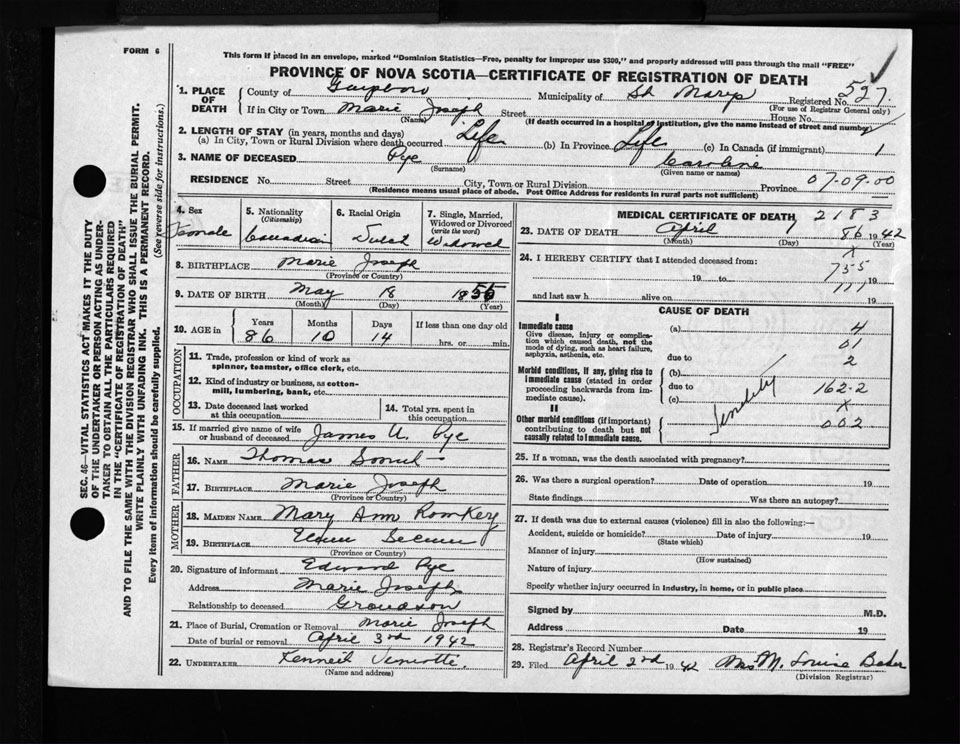 FORM 6
This form if placed in an envelope, marked "Dominion Statistics—Free, penalty for improper use $300," and properly addressed will pass through the mail "FREE"
PROVINCE OF NOVA SCOTIA—CERTIFICATE OF REGISTRATION OF DEATH
1. PLACE OF DEATH
County of Municipality of St Marys Registered No. 527
(For use of Registrar General only)
If in City or Town Marie Joseph Street House No.
(Name) (If death occurred in a hospital or institution, give the name instead of street and number)
2. LENGTH OF STAY (in years, months and days)
(a) In City, Town or Rural Division where death occurred Life (b) In Province Life (c) In Canada (if immigrant) 1
3. NAME OF DECEASED Pye Caroline
(Surname) (Given name or names)
RESIDENCE No. Street City, Town or Rural Division Province 07-09-00
(Residence means usual place of abode. Post Office Address for residents in rural parts not sufficient)
4. Sex Female
5. Nationality (Citizenship) Canadian
6. Racial Origin Dutch
7. Single, Married, Widowed or Divorced (write the word) Widowed
8. BIRTHPLACE Marie Joseph
(Province or Country)
9. DATE OF BIRTH May 18
(Month) (Day) (Year)
10. AGE in Years 86 Months 10 Days 14 If less than one day old hrs. or min.
OCCUPATION
11. Trade, profession or kind of work as spinner, teamster, office clerk, etc.
12. Kind of industry or business, as cotton-mill, lumbering, bank, etc.
13. Date deceased last worked at this occupation
14. Total yrs. spent in this occupation
15. If married give name of wife or husband of deceased James Pye
FATHER
16. NAME Thomas
17. BIRTHPLACE Marie Joseph
(Province or Country)
MOTHER
18. MAIDEN NAME Mary Ann Romkey
19. BIRTHPLACE Secum
(Province or Country)
20. Signature of informant Edward Pye
Address Marie Joseph
Relationship to deceased Grandson
21. Place of Burial, Cremation or Removal Marie Joseph
Date of burial or removal April 3rd 1942
22. UNDERTAKER
(Name and address)
MEDICAL CERTIFICATE OF DEATH 2183
23. DATE OF DEATH April 1942
(Month) (Day) (Year)
24. I HEREBY CERTIFY that I attended deceased from: x
19 to 735 19
and last saw h alive on 111 19
CAUSE OF DEATH
I
Immediate cause
Give disease, injury or complication which caused death, not the mode of dying, such as heart failure, asphyxia, asthenia, etc.
(a) 4
01
due to 2
Morbid conditions, if any, giving rise to immediate cause (stated in order proceeding backwards from immediate cause).
(b)
due to 162-2
(c) x
II
Other morbid conditions (if important) contributing to death but not causally related to immediate cause.
002
25. If a woman, was the death associated with pregnancy?
26. Was there a surgical operation? Date of operation 19
State findings Was there an autopsy?
27. If death was due to external causes (violence) fill in also the following:—
Accident, suicide or homicide? Date of injury 19
(State which)
Manner of injury
(How sustained)
Nature of injury
Specify whether injury occurred in industry, in home, or in public place
Signed by M.D.
Address Date 19
28. Registrar's Record Number
29. Filed April 2nd 1942 Mrs M. Louise Baker
(Division Registrar)
SEC. 46—VITAL STATISTICS ACT MAKES IT THE DUTY
OF THE UNDERTAKER OR PERSON ACTING AS UNDER-
TAKER TO OBTAIN ALL THE PARTICULARS REQUIRED
IN THE "CERTIFICATE OF REGISTRATION OF DEATH"
AND TO FILE THE SAME WITH THE DIVISION REGISTRAR WHO SHALL ISSUE THE BURIAL PERMIT.
WRITE PLAINLY WITH UNFADING INK. THIS IS A PERMANENT RECORD.
Every item of information should be carefully supplied. (See reverse side for instructions.)